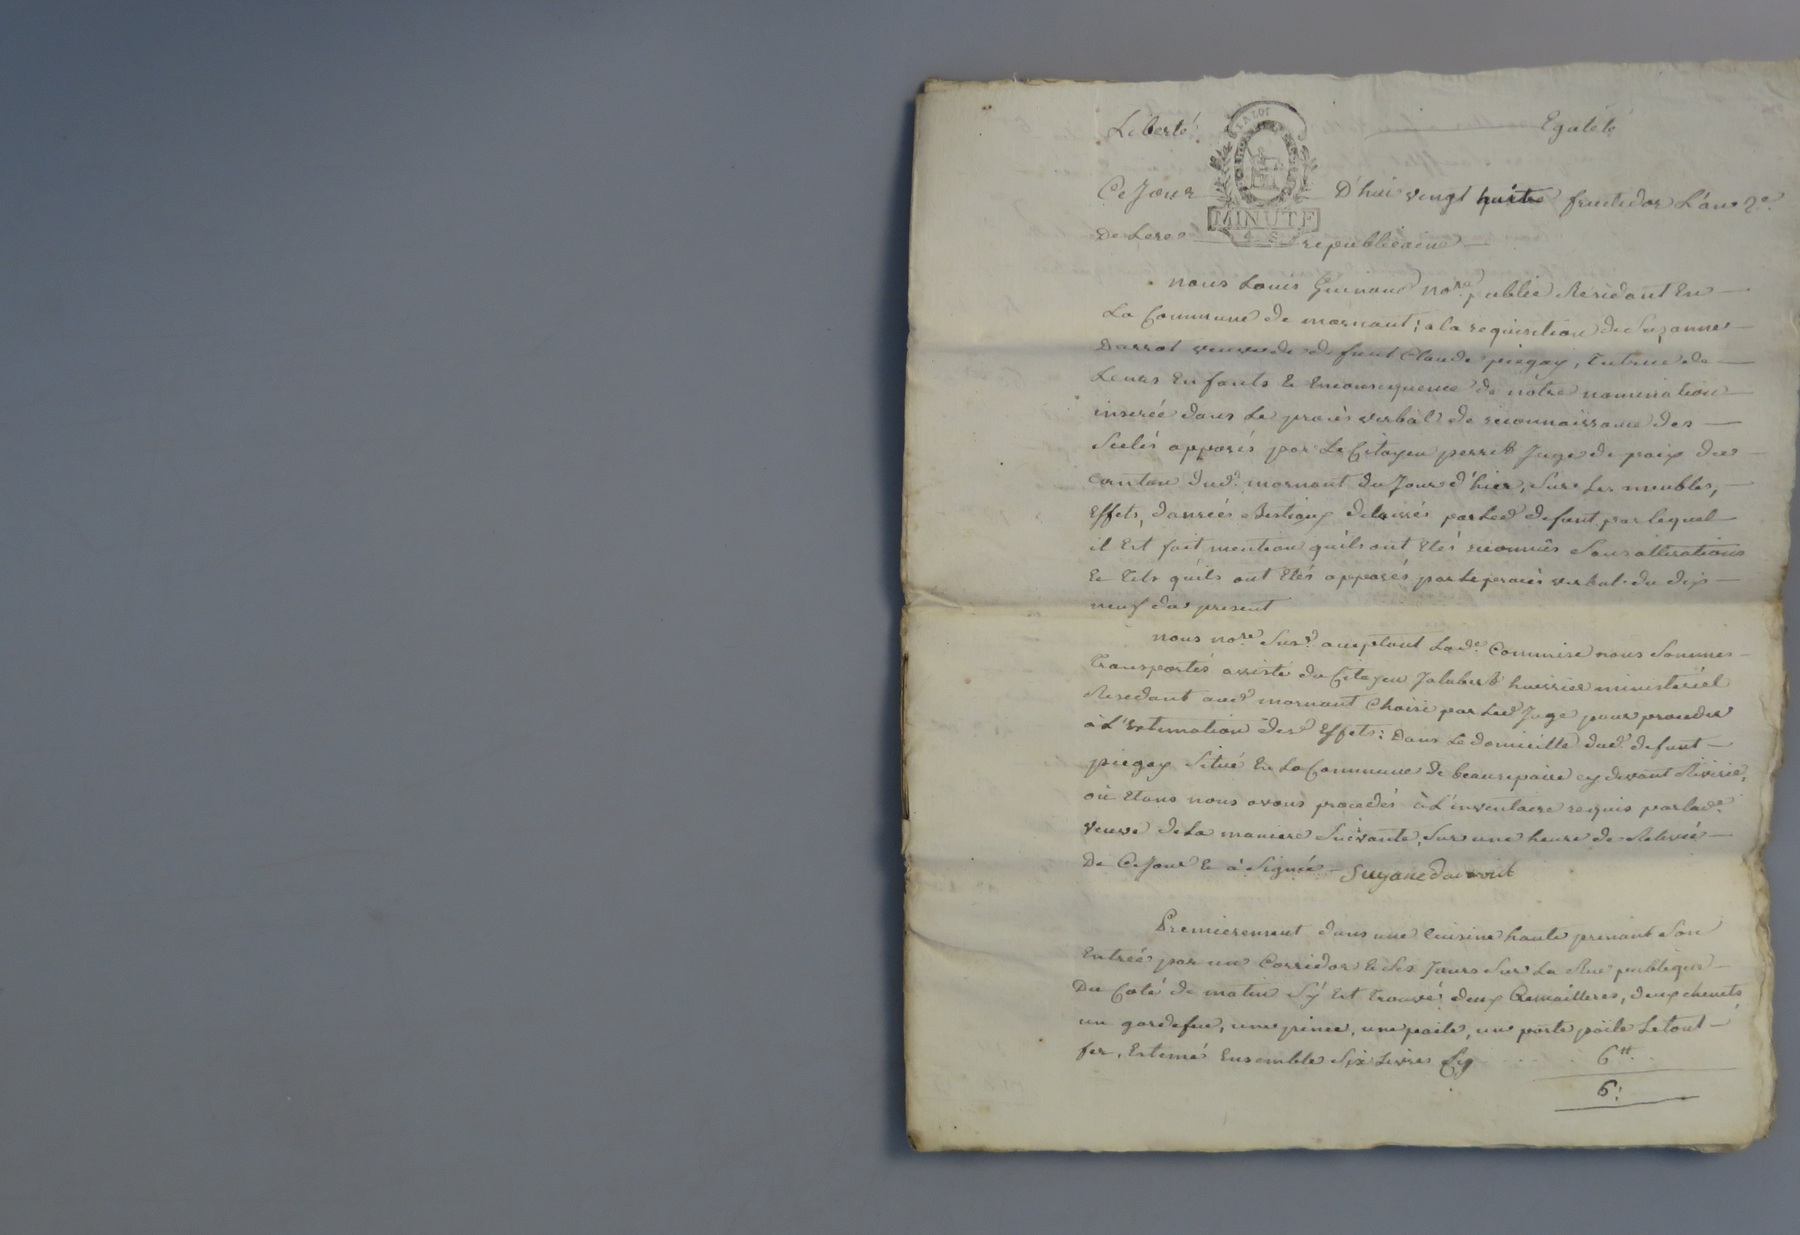 Liberté Egalité
LA LOI
MINUTE
4. S.
Ce Jour D'hui vingt huit fructidor L'an 2e.
De Lere republicaine
nous Louis Guinand nore. public Residant En
La Commune de mornant; a la requisition de Suzanne
Darrot veuve de defunt Claude piegay, Tutrice de
Leurs Enfants & Enconsequence de notre nomination
inserée dans Le procès verbal de reconnaissance des
Scelés apposés par Le Citoyen perret Juge de paix du
Canton dud. mornant du Jour d'hier, Sur Les meubles,
Effets, danrées Bestiaux delaissés par Led. defunt, par lequel
il Est fait mention qu'ils ont Etés reconnûs Sans alterations
Et Tels qu'ils ont Etés apposés par Le procès verbal du dix
neuf du present
nous nore. Susd. acceptant Lade. Commise nous Sommes
Transportés assisté du Citoyen Jalabert huissier ministériel
Residant aud. mornant Choisi par Led. Juge pour proceder
à L'Estimation desd. Effets: Dans Le domicille dud. defunt
piegay Situé En La Commune de beaurepaire cy devant Riverie,
où Etans nous avons procedés à L'inventaire requis par lade.
veuve de La maniere Suivante, Sur une heure de Relevée
De Ce Jour Et à Signé Suzane
Premierement dans une Cuisine haute prenant Son
Entrée par un Corridor & Ses Jours Sur La Rue publique
Du Coté de matin S'y Est trouvé deux Cremailleres, deux chenets,
un gardefeu, une pince, une paile, un porte poile Le tout
fer, Estimé Ensemble Six Livres Cy 6tt
6.